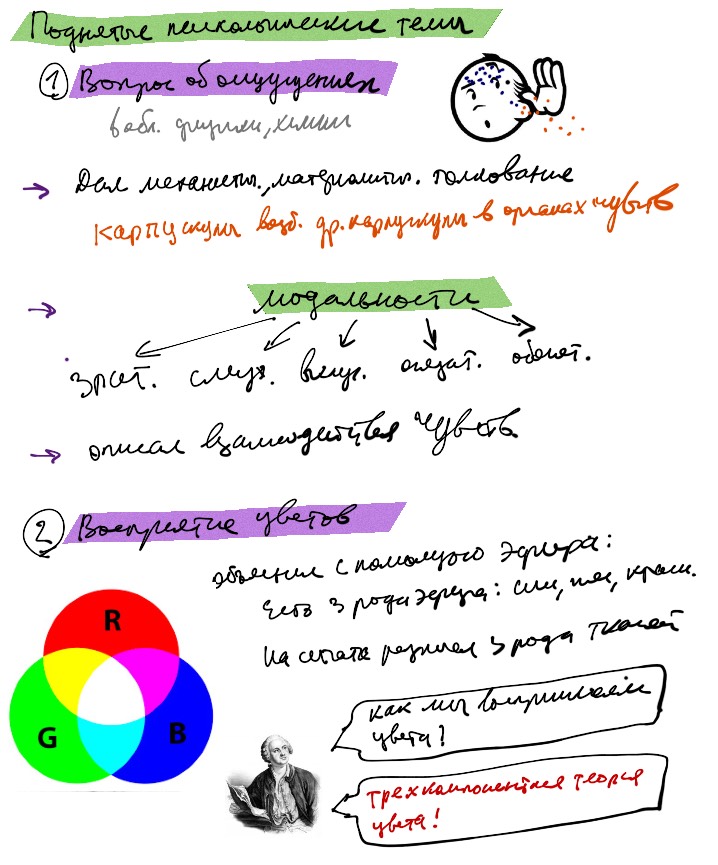 Поднятые психологические темы
1 Вопрос об ощущениях
в обл. физики, химии
→ Дал механист., материалист. толкование
Карпускулы возб. др. карпускулы в органах чувств
→ модальности
зрит. слух. вкус. осязат. обонят.
→ описал взаимодействия чувств
2 Восприятие цветов
объяснил с помощью эфира:
R
Есть 3 рода эфира: син, жел, красн.
На сетчатке различал 3 рода тканей
G
B
как мы воспринимаем
цвета?
трехкомпонентная теория
цвета!